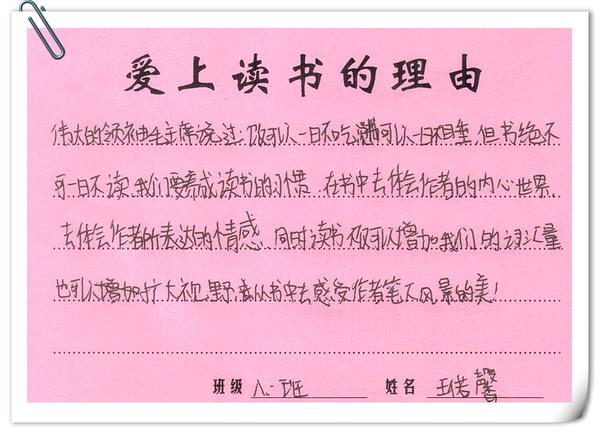 爱上读书的理由
伟大的领袖毛主席说过:饭可以一日不吃,可以一日不睡,但书绝不
可一日不读,我们要养成读书的习惯,在书中去体会作者的内心世界,
去体会作者所表达的情感,同时读书可以增加我们的词汇量
也可以增加扩大视野,我从书中去感受作者笔下风景的美!
班级 八一班 姓名 王若馨